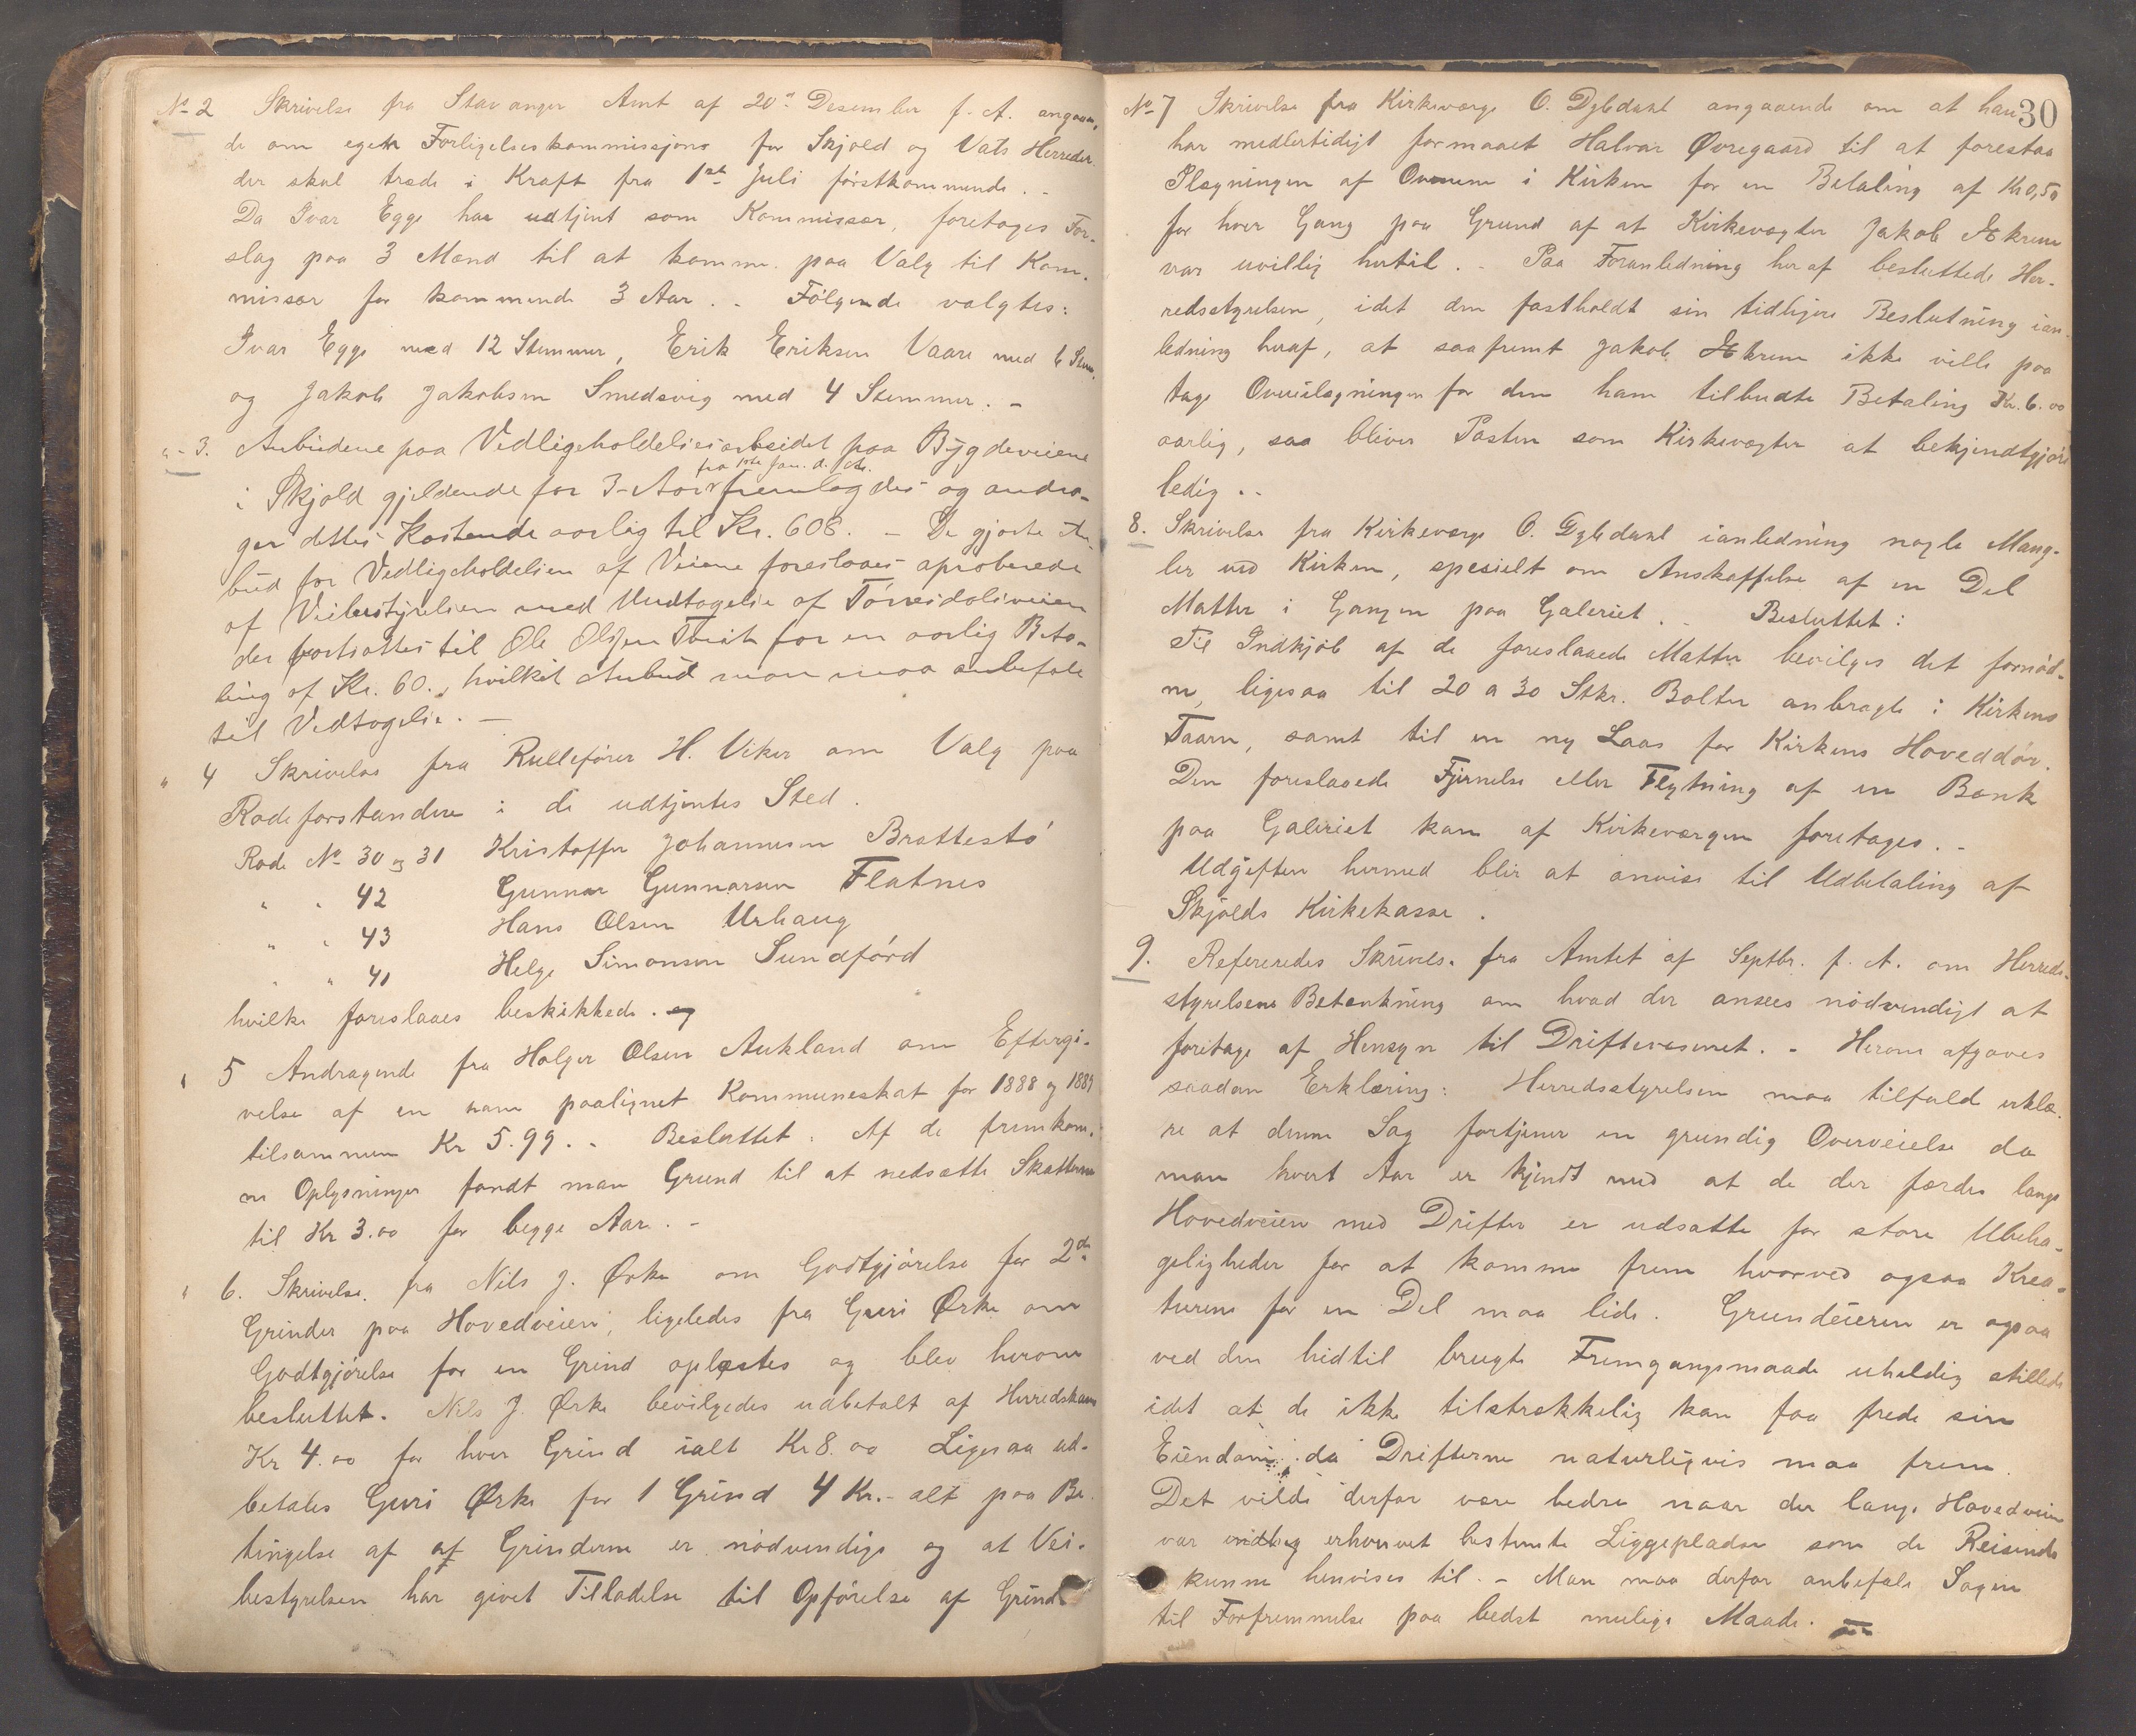 No 2 Skrivelse fra Stavanger Amt af 20de Desember f. A. angaaen,
de om egen Forligelseskommissjons for Skjold og Vats Herreder
der skal træde i Kraft fra 1ste Juli förstkommende. -
Da Ivar Egge har udtjent som Kommissær, foretages For-
slag paa 3 Mænd til at komme paa Valg til Kom-
missær for kommende 3 Aar. - Fölgende valgtes:
Ivar Egge med 12 Stemmer, Erik Eriksen Vaare med 6 Stem.
og Jakob Jakobsen Smedsvig med 4 Stemmer. -
" - 3. Anbudene paa Vedligeholdelsesarbeidet paa Bygdeveiene
fra 1ste Jan. d. A.
i Skjold gjeldende for 3 Aar fremlagdes og andra-
ger dettes Kostende aarlig til Kr. 608. - De gjorte An-
bud for Vedligeholdelsen af Veiene foreslaaes aproberede
af Veibestyrelsen med Undtagelse af Törresdalsveien
der fortsattes til Ole Olsen Tveit for en aarlig Beta-
ling af Kr. 60., hvilket Anbud man maa anbefale
til Vedtagelse. -
" 4 Skrivelse fra Rulleförer H. Viker om Valg paa
Rodeforstandere i de udtjentes Sted.
Rode No 30 og 31 Kristoffer Johannesen Brattestö
" " 42 Gunnar Gunnarsen Flatnes
" " 43 Hans Olsen Urhaug
" " 41 Helge Simonsen Sundförd
hvilke foreslaaes beskikkede.
" 5 Andragende fra Holger Olsen Aukland om Eftergi-
velse af en ham paalignet Kommuneskat for 1888 og 1889
tilsammen Kr 5.99. - Besluttet: Af de fremkom-
ne Oplysninger fandt man Grund til at nedsætte Skatterne
til Kr 3.00 for begge Aar. -
" 6. Skrivelse fra Nils J. Ørke om Godtgjörelse for 2de
Grinder paa Hovedveien, ligeledes fra Guri Ørke om
Godtgjörelse for en Grind oplæstes og blev herom
besluttet. Nils J. Ørke bevilgedes udbetalt af Herredskassen
Kr 4.00 for hver Grind ialt Kr 8.00 Ligesaa ud-
betales Guri Ørke for 1 Grind 4 Kr. - alt paa Be-
tingelse af at Grinderne er nödvendige og at Vei-
bestyrelsen har givet Tilladelse til Opförelse af Grinde
30
No 7 Skrivelse fra Kirkeværge O. Dybdahl angaaende om at han
har medlertidigt formaaet Halvar Øvregaard til at forestaa
Plægningen af Ovnene i Kirken for en Betaling af Kr 0,50
for hver Gang paa Grund af at Kirkevægter Jakob Økrene
var uvillig hertil. - Paa Foranledning heraf besluttede Her-
redsstyrelsen, idet den fastholdt sin tidligere Beslutning ian-
ledning heraf, at saafremt Jakob Økrene ikke ville paa
tage Ovnsilægningen for den ham tilbudte Betaling Kr. 6.00
aarlig, saa bliver Posten som Kirkevægter at bekjendtgjöre
ledig. -
8. Skrivelse fra Kirkeværge O. Dybdahl ianledning nogle Mang-
ler ved Kirken, spesielt om Anskaffelse af en Del
Matter i Gangen paa Galeriet. - Besluttet:
Til Indkjöb af de foreslaaede Matter bevilges det fornöd-
ne, ligesaa til 20 a 30 Stkr. Bolter anbragte i Kirkens
Taarn, samt til en ny Laas for Kirkens Hoveddör.
Den foreslaaede Fjernelse eller Flytning af en Bænk
paa Galeriet kan af Kirkeværgen foretages. -
Udgiften hermed blir at anvise til Udbetaling af
Skjolds Kirkekasse.
9. Refereredes Skrivels. fra Amtet af Septbr. f. A. om Herreds-
styrelsens Betænkning om hvad der ansees nödvendigt at
foretage af Hensyn til Driftevæsenet. - Herom afgaves
saadan Erklæring: Herredsstyrelsen maa tilfuld erklæ-
re at denne Sag fortjener en grundig Overveielse da
man hvert Aar er kjendt med at de der færdes langs
Hovedveien med Drifter er udsatte for store Ubeha-
geligheder for at komme frem hvorved ogsaa Krea-
turene for en Del maa lide. Grundeieren er ogsaa
ved den hidtil brugte Fremgangsmaade uheldig stillede
idet at de ikke tilstrækkelig kan faa frede sin
Eiendom, da Drifterne naturligvis maa frem.
Det vilde derfor være bedre naar der langs Hovedveien
var erhvervet bestemte Liggepladse som de Reisende
kunne henvises til. - Man maa derfor anbefale Sagen
til Forfremmelse paa bedst mulige Maade.